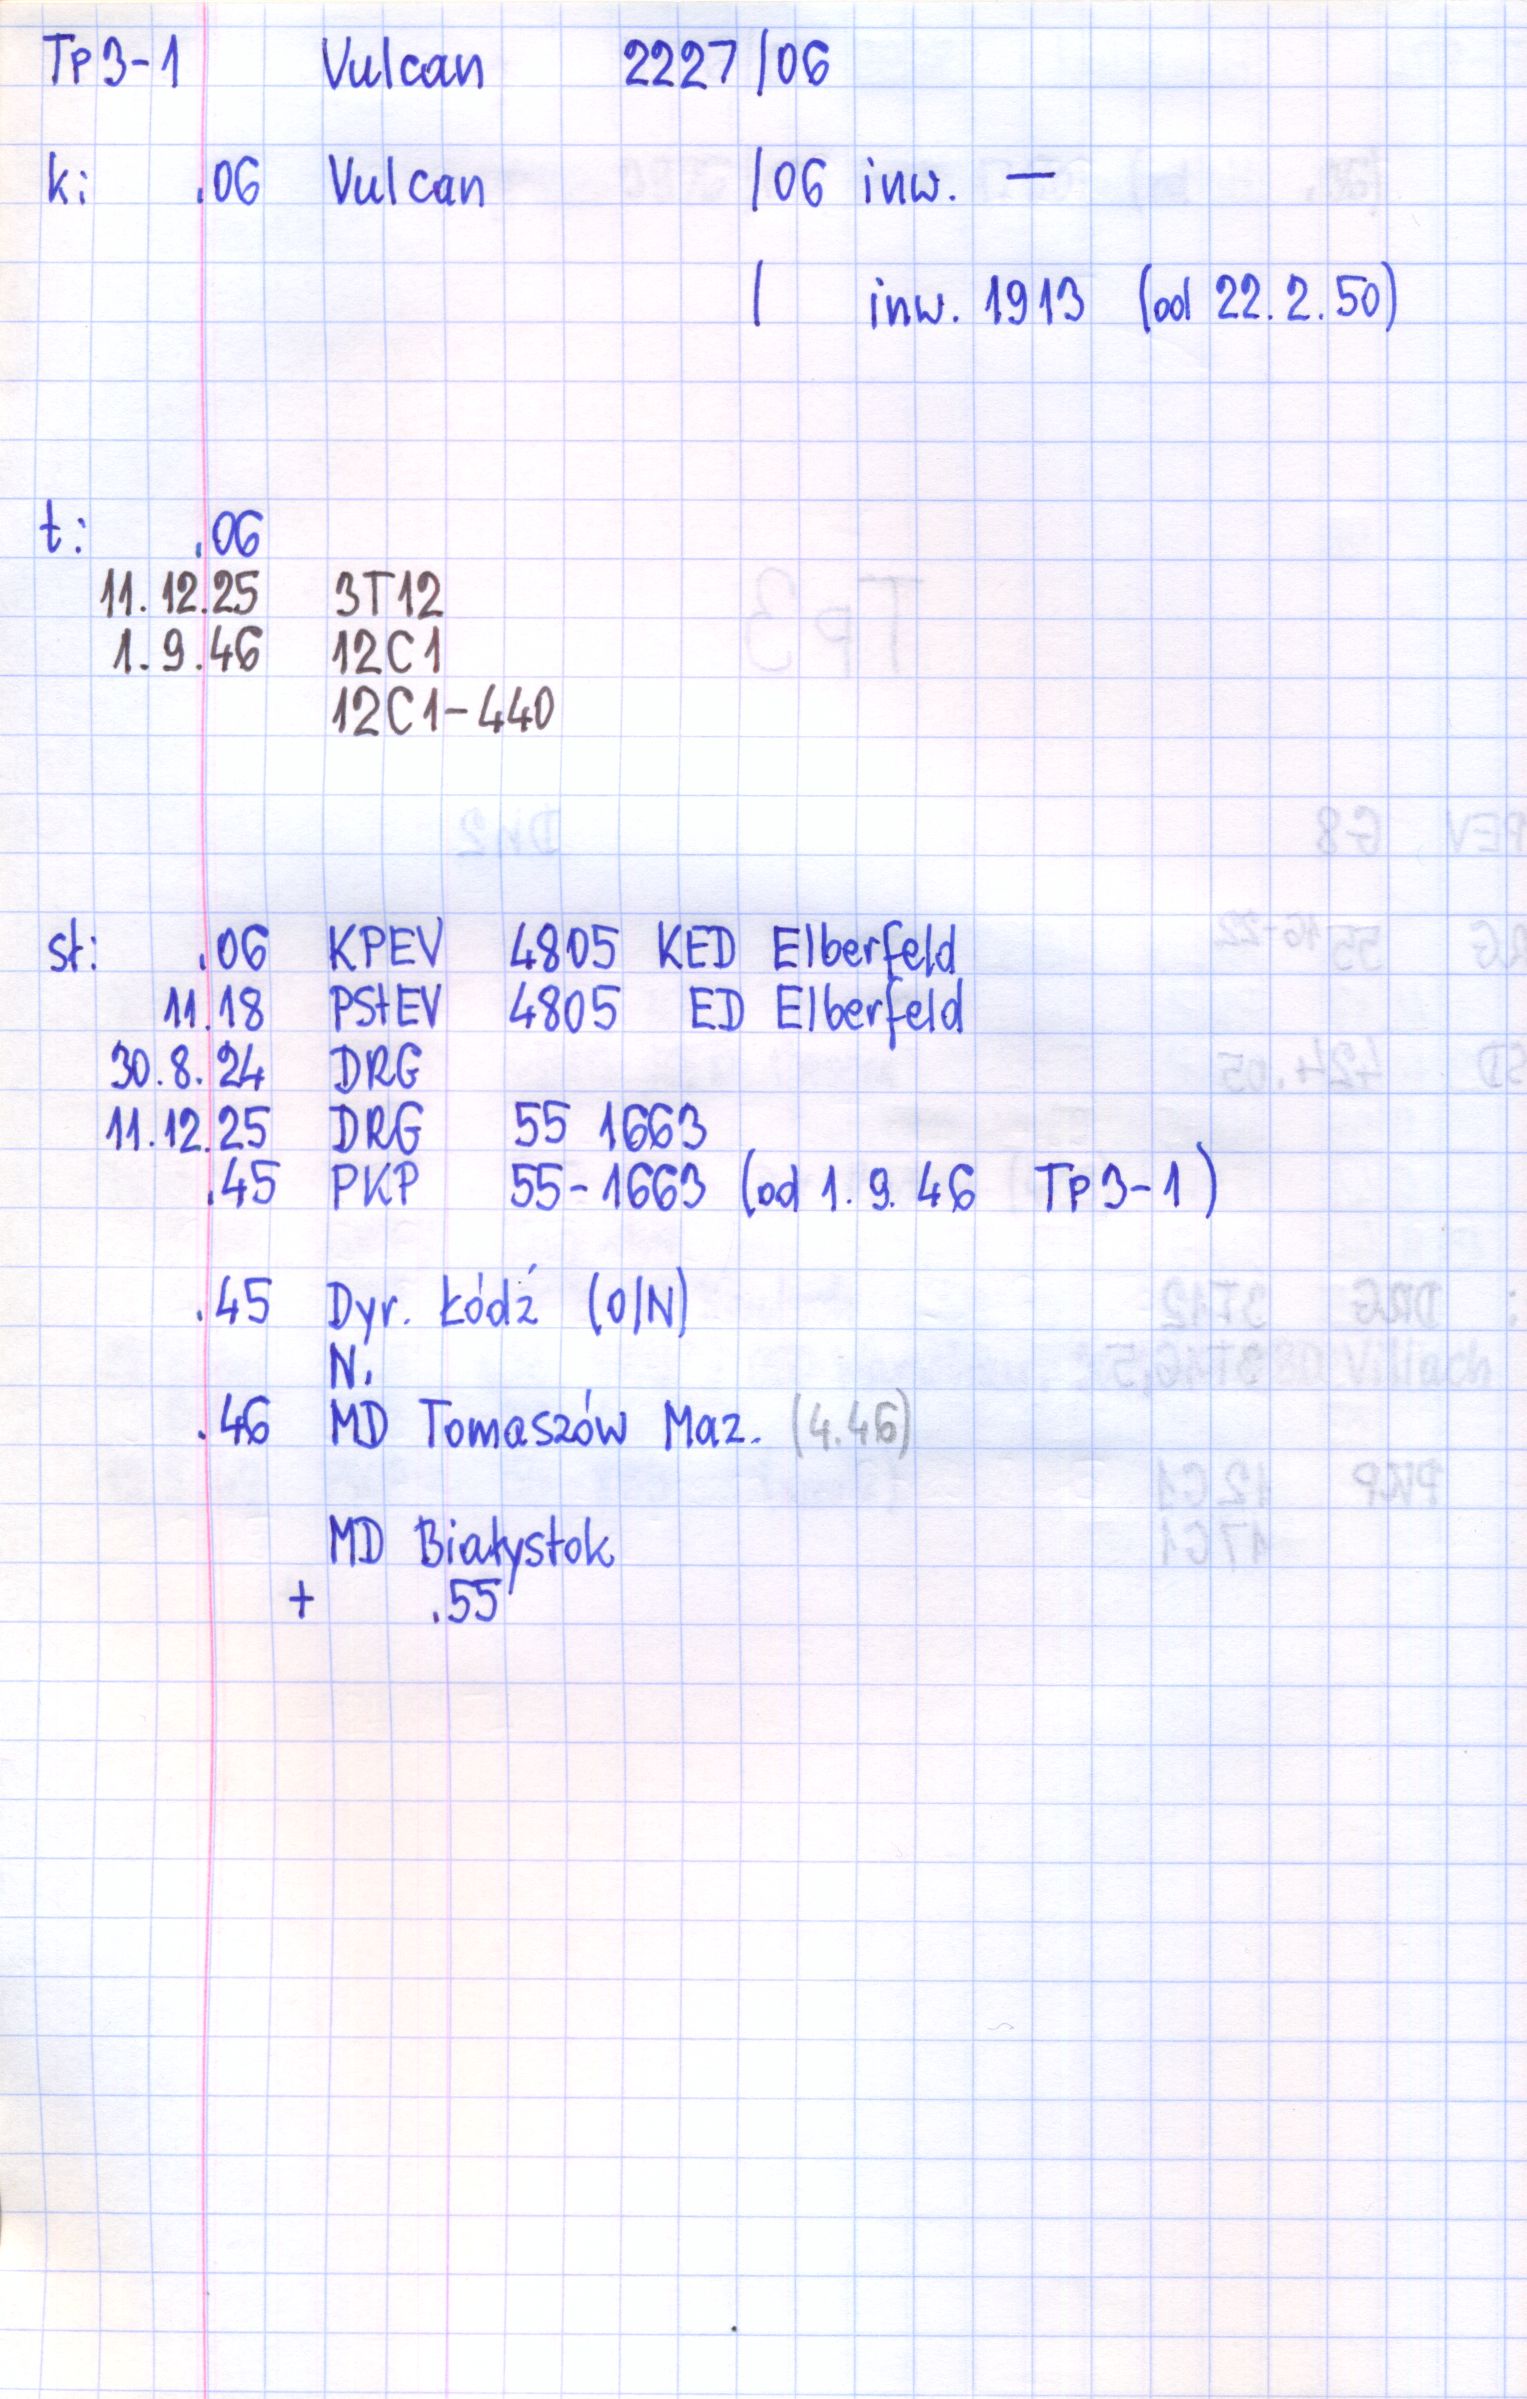 Tp3-1 Vulcan 2227/06
k: .06 Vulcan /06 inw. —
/ inw. 1913 (od 22.2.50)
t: .06
11.12.25 3T12
1.9.46 12C1
12C1-440
st: .06 KPEV 4805 KED Elberfeld
11.18 PStEV 4805 ED Elberfeld
30.8.24 DRG
11.12.25 DRG 55 1663
.45 PKP 55-1663 (od 1.9.46 Tp3-1)
.45 Dyr. Łódź (O/N)
N.
.46 MD Tomaszów Maz. (4.46)
MD Białystok
+ .55